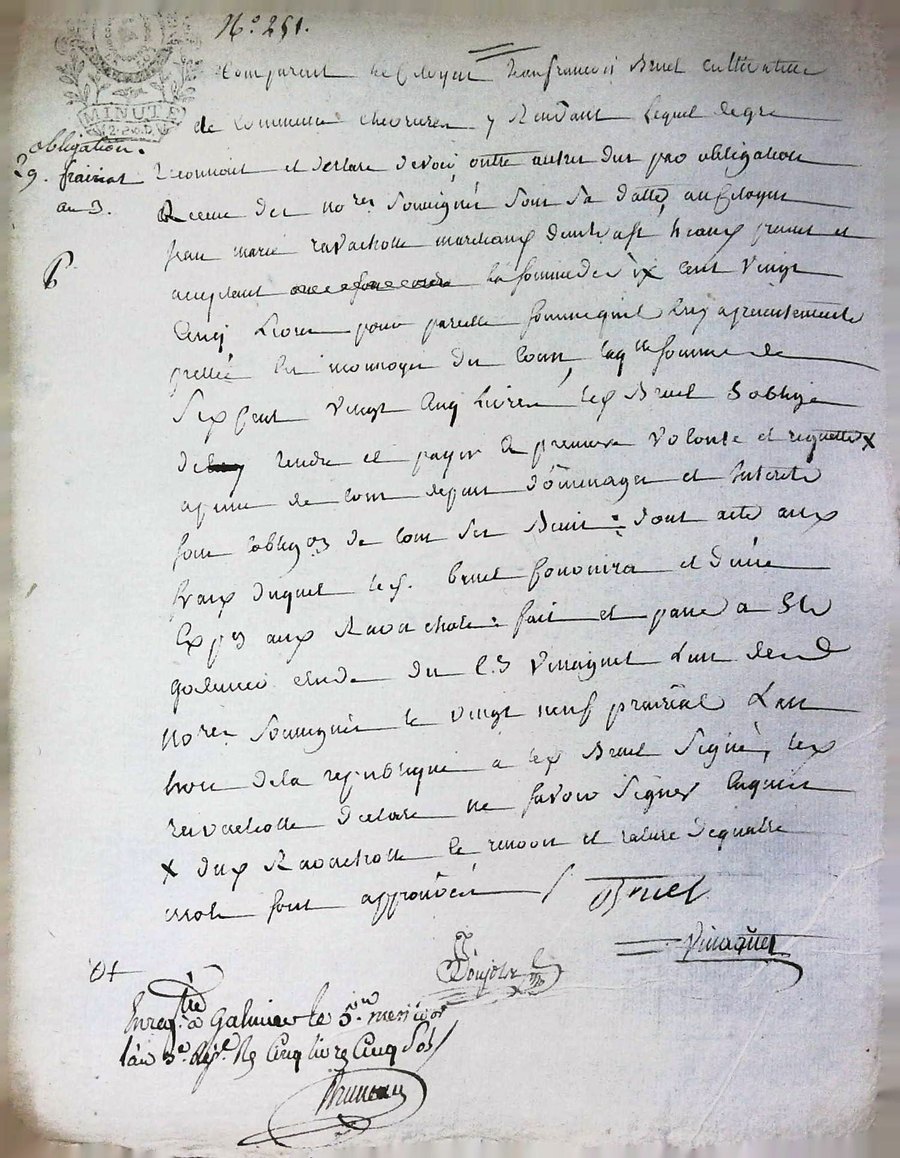 N.° 251.
MINUTE
obligation.
29. prairial
an 3.
Comparent le Citoyen Jean francois Bruel cultivateur
de Commune chevrieres y Residant Lequel de gre
Reconnoit et declare devoir, outre autres dus par obligations
Receue des not.res Soussignés sous sa datte, au Citoyen
Jean marie ravacholle marchand dudit present et
acceptant la somme de six cent vingt
Cinq Livres pour pareille somme qu'il luy a presentement
prettée en monnoye du cours, laq.lle somme de
Six Cent vingt Cinq Livres, led Bruel S'oblige
de rendre et payer a premiere volonté et requette x
a peine de tous depens domages et Interets
sous l'oblig.on de tous ses Biens : dont acte aux
fraix duquel led. Bruel fournira et d'une
Exp.on aux Ravachole : fait et passé a St
galmier etude du C.en Vinagnet L'un desd
no.res Soussignés le vingt neuf prairial L'an
trois de la republique a led Bruel Signé, led
ravacholle declaré ne savoir Signer Enquis
x dud Ravacholle le renvoi et rature de quatre
mots sont approuvées
Bruel
Vinagnet
Enreg.tré a Galmier le 5.e messidor
l'an 3.e Rep.e R. Cinq livres Cinq Sols
Bruneau